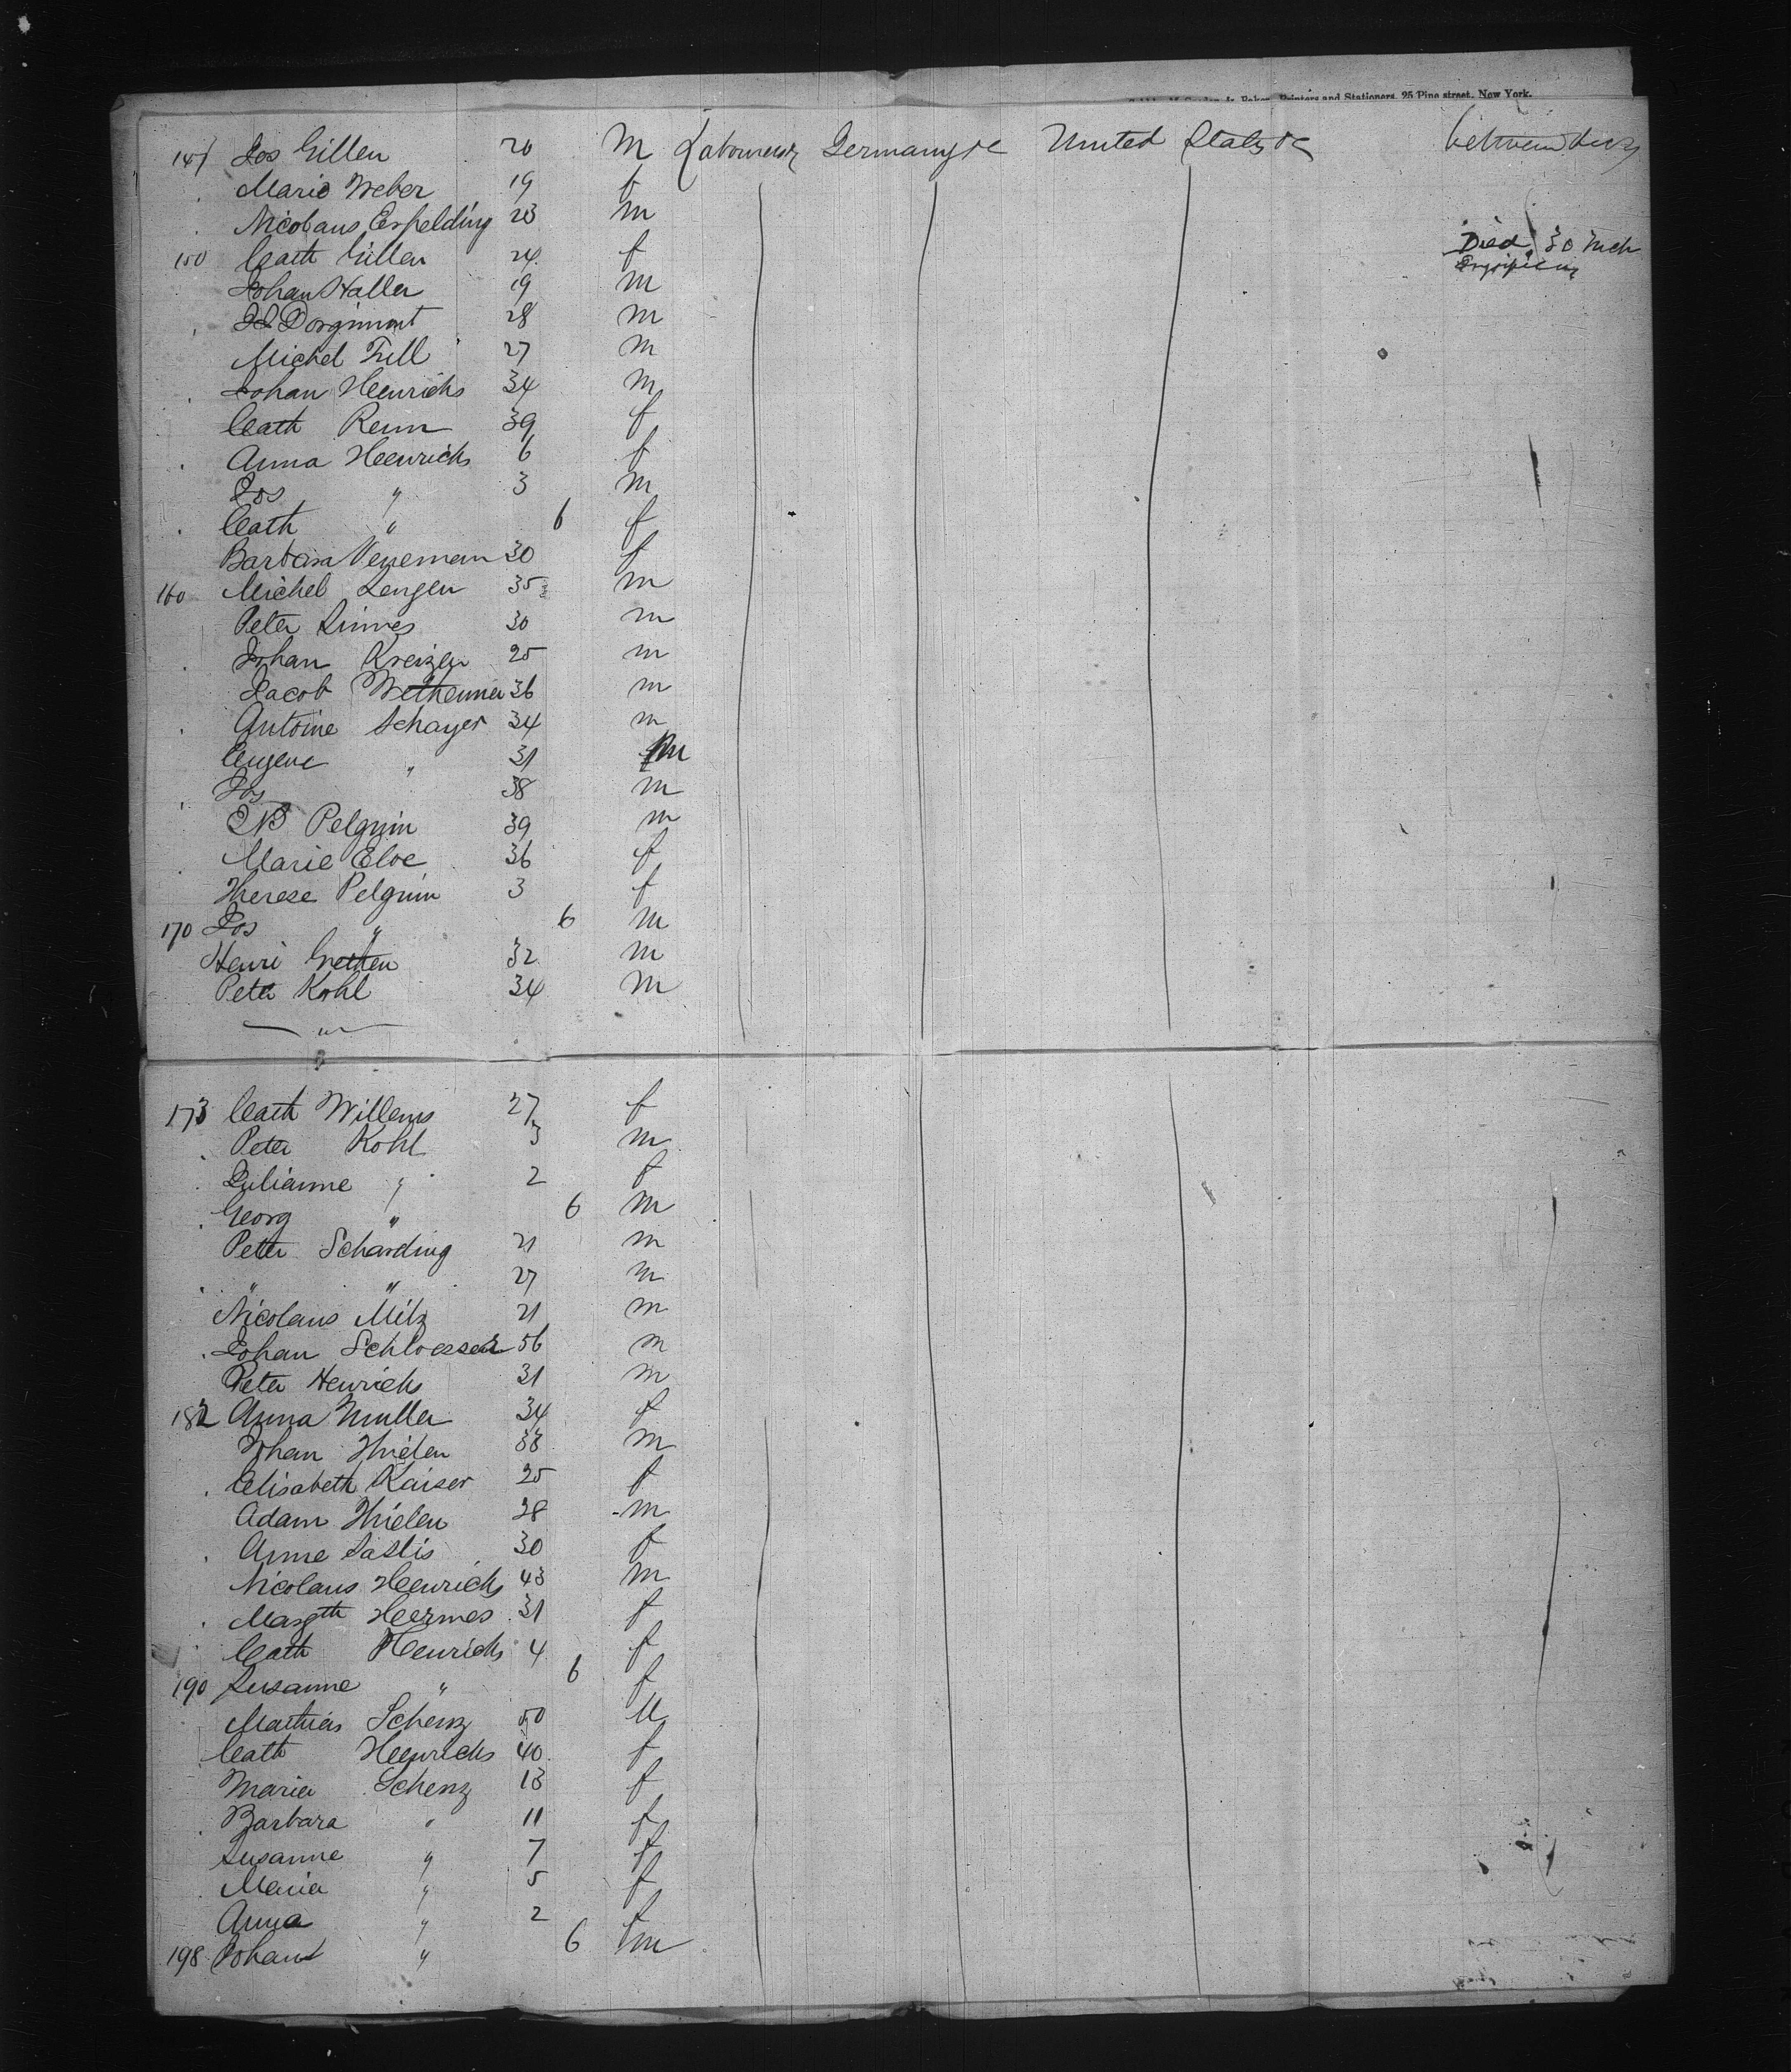 Printers and Stationers, 25 Pine street, New York.
147 Jos Gillen 20 M Labourers Germany &c United States &c between decks
Marie Weber 19 f
Nicolaus Erpelding 23 m
150 Cath Gillen 24 f Died 30 Mch
Johan Haller 19 m
Dorgimont 28 m
Michel Fell 27 m
Johan Heenrichs 34 m
Cath Renn 39 f
Anna Heenrichs 6 f
Jos " 3 m
Cath " 6 f
Barbara Veneman 30 f
160 Michel Lengen 35 m
Peter Linnes 30 m
Johan Kreizen 25 m
Jacob 36 m
Antoine Schayer 34 m
Eugene " 31 m
Jos 38 m
Pelgrim 39 m
Marie Eloe 36 f
Therese Pelgrim 3 f
170 Jos " 6 m
Henri Grethen 32 m
Peter Kohl 34 m
173 Cath Willems 27 f
Peter Kohl 3 m
Julianne " 2 f
Georg " 6 m
Peter Scharding 21 m
" " 27 m
Nicolaus Milz 21 m
Johan Schloesser 56 m
Peter Henrichs 31 m
182 Anna Muller 34 f
Johan Thielen 33 m
Elisabeth Kaiser 25 f
Adam Thielen 28 m
Anne 30 f
Nicolaus Heenrichs 43 m
Margth Heermes 31 f
Cath Heenrichs 4 f
190 Susanne " 6 f
Mathias Schenz 50 M
Cath Heenrichs 40 f
Maria Schenz 13 f
Barbara " 11 f
Susanne " 7 f
Maria " 5 f
Anna " 2 f
198 Johann " 6 m